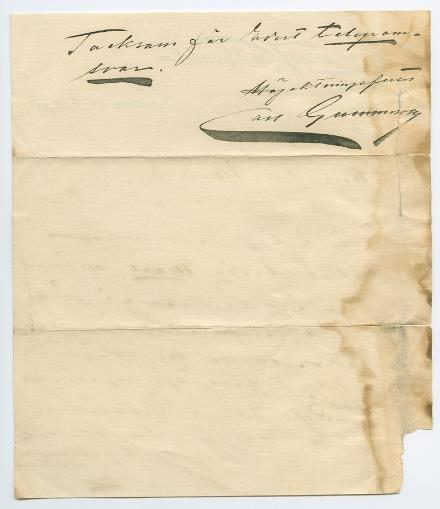 Tacksam för Edert telegram-
svar.
Högaktningsfullt
Carl Gummeson